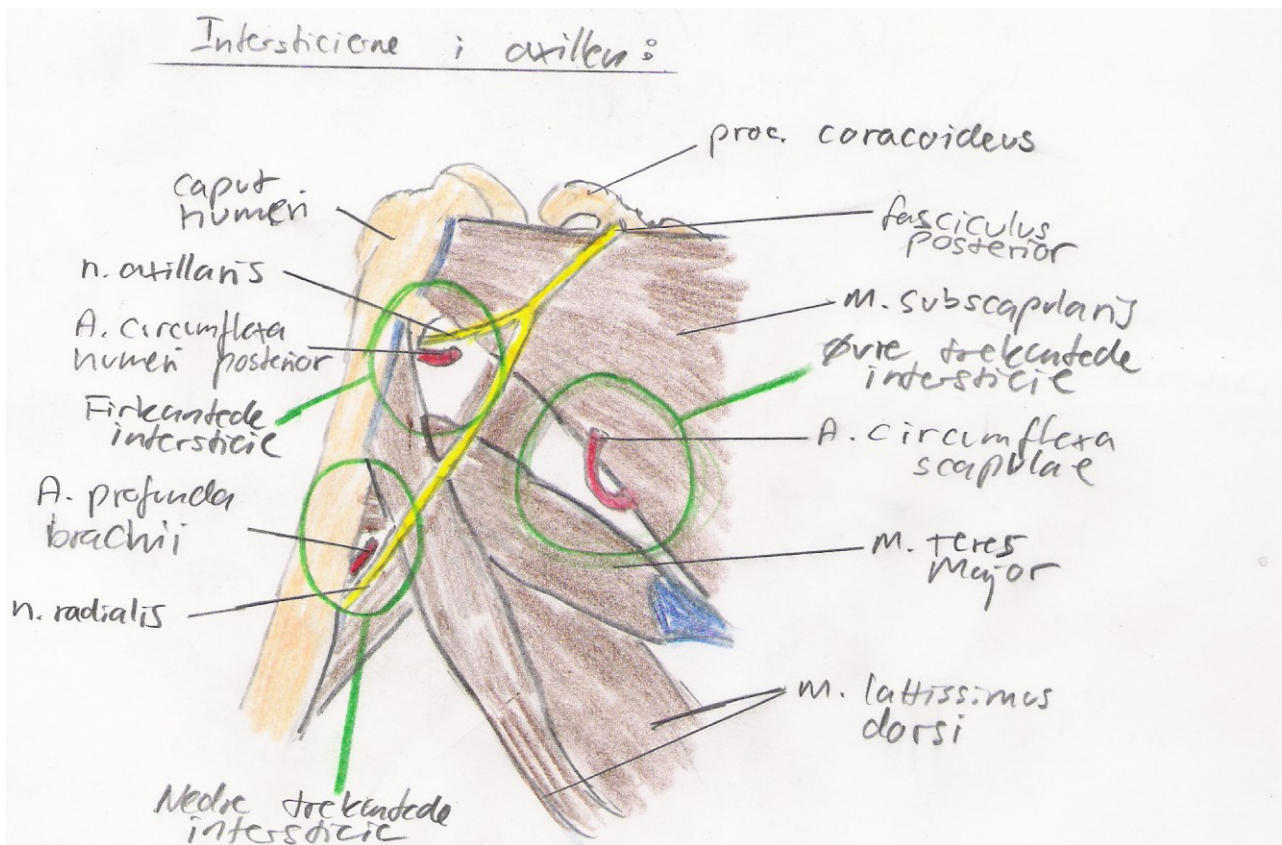 Intersticierne i axillen:
proc. coracoideus
caput
humeri
fasciculus
posterior
n. axillaris
M. subscapularis
A. circumflexa
humeri posterior
Øvre trekantede
intersticie
Firkantede
intersticie
A. circumflexa
scapulae
A. profunda
brachii
M. teres
Major
n. radialis
m. lattissimus
dorsi
Nedre trekantede
intersticie